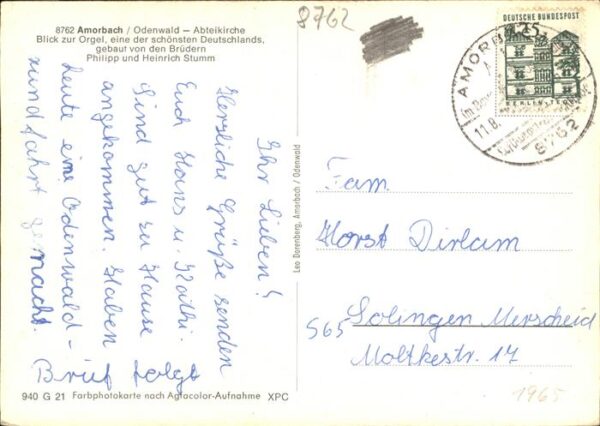 8762 Amorbach / Odenwald – Abteikirche
Blick zur Orgel, eine der schönsten Deutschlands,
gebaut von den Brüdern
Philipp und Heinrich Stumm
8762
DEUTSCHE BUNDESPOST
BERLIN-TEGEL
AMORBACH
11.8.
8762
Ihr Lieben!
Herzliche Grüße senden
Euch Hans u. Käthi.
Sind gut zu Hause
angekommen. Haben
heute eine Odenwald-
rundfahrt gemacht.
Brief folgt
Leo Dorenberg, Amorbach / Odenwald
Fam.
Horst Dirlam
565 Solingen Merscheid
Moltkestr. 17
1965
940 G 21 Farbphotokarte nach Agfacolor-Aufnahme XPC